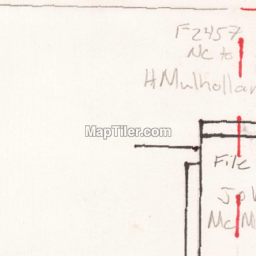 F2457
Nc to
H Mulhollan
MapTiler.com
File
Joh
Mc M